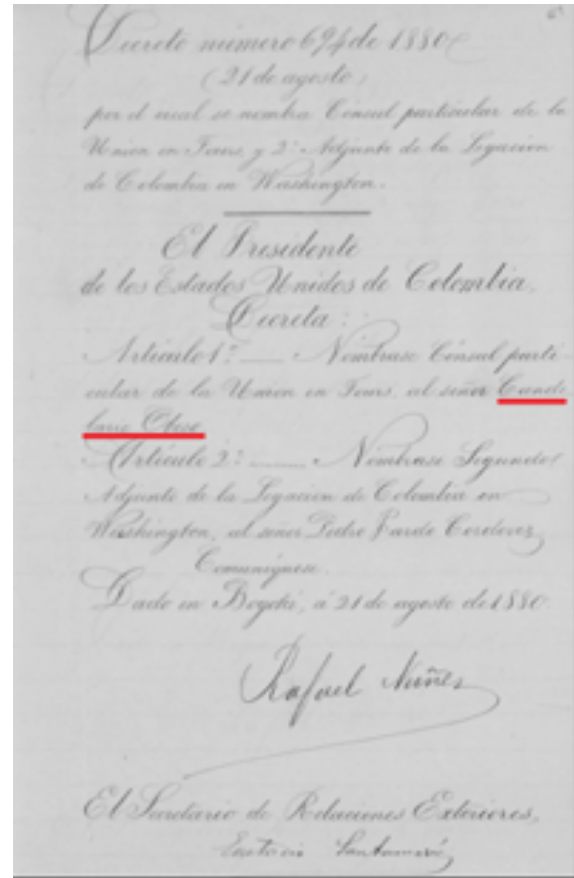 Decreto número 694 de 1880
(21 de agosto)
por el cual se nombra Cónsul particular de la
Union en Tours, y 2º Adjunto de la Legacion
de Colombia en Washington.
El Presidente
de los Estados Unidos de Colombia,
Decreta:
Artículo 1º — Nómbrase Cónsul parti-
cular de la Union en Tours, al señor Cande
lario Obeso
Artículo 2º — Nómbrase Segundo
Adjunto de la Legacion de Colombia en
Washington, al señor Pedro Pardo Cordovez
Comuníquese.
Dado en Bogotá, á 21 de agosto de 1880.
Rafael Núñez
El Secretario de Relaciones Exteriores,
Eustacio Santamaría